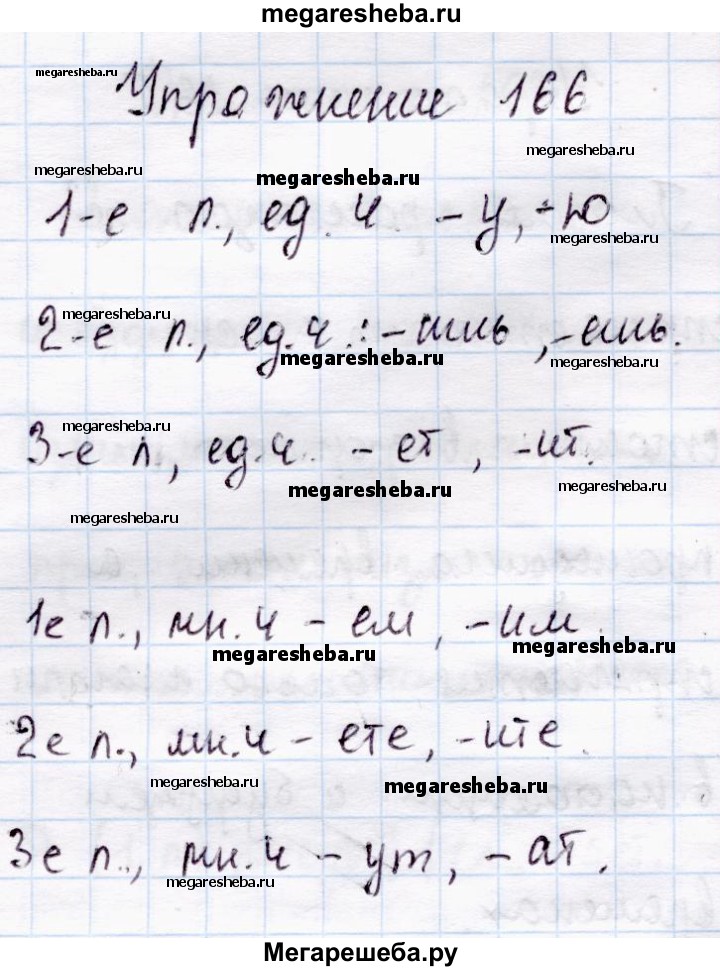 megaresheba.ru
megaresheba.ru
Упражнение 166
megaresheba.ru
megaresheba.ru
megaresheba.ru
1-е л., ед. ч. - у, -ю
megaresheba.ru
megaresheba.ru
2-е л., ед.ч.: -ишь, -ешь.
megaresheba.ru
megaresheba.ru
megaresheba.ru
3-е л., ед.ч. - ет, -ит.
megaresheba.ru
megaresheba.ru
megaresheba.ru
1е л., мн.ч - ем, -им.
megaresheba.ru
megaresheba.ru
2е л., мн.ч - ете, -ите.
megaresheba.ru
megaresheba.ru
3е л., мн.ч - ут, -ат.
megaresheba.ru
Мегарешеба.ру